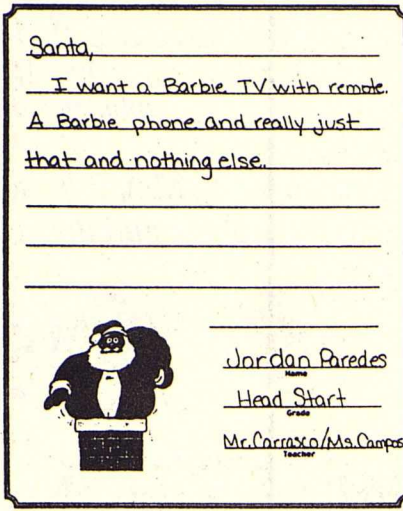 Santa,
I want a Barbie TV with remote.
A Barbie phone and really just
that and nothing else.
Jordan Paredes
Name
Head Start
Grade
Mr. Carrasco/Ms. Campos
Teacher